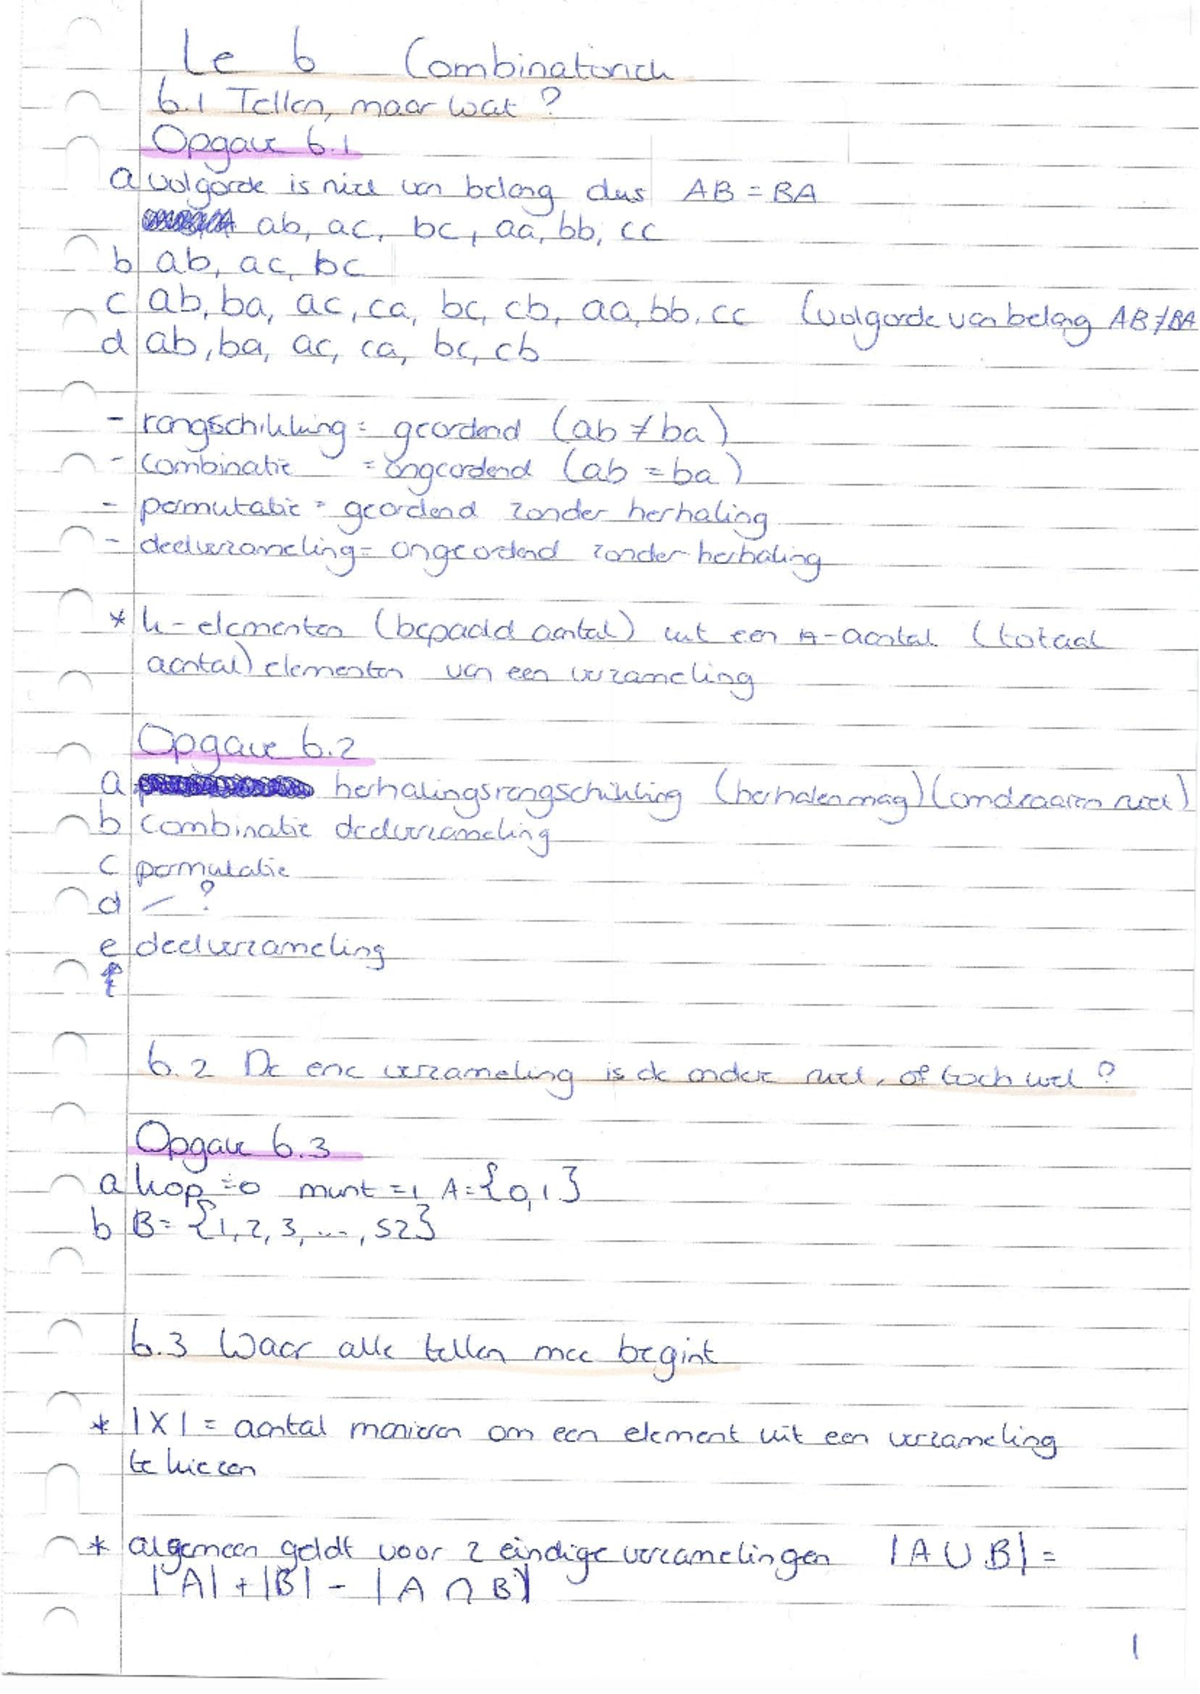 Le 6 Combinatoriek
6.1 Tellen, maar wat?
Opgave 6.1
a volgorde is niet van belang dus AB = BA
ab, ac, bc, aa, bb, cc
b ab, ac, bc
c ab, ba, ac, ca, bc, cb, aa, bb, cc (volgorde van belang AB ≠ BA
d ab, ba, ac, ca, bc, cb
- rangschikking = geordend (ab ≠ ba)
- combinatie = ongeordend (ab = ba)
- permutatie = geordend zonder herhaling
- deelverzameling = ongeordend zonder herhaling
* k-elementen (bepaald aantal) uit een n-aantal (totaal
aantal) elementen van een verzameling
Opgave 6.2
a herhalingsrangschikking (herhalen mag) (omdraaien niet)
b combinatie deelverzameling
c permutatie
d - ?
e deelverzameling
f
6.2 De ene verzameling is de andere niet, of toch wel?
Opgave 6.3
a kop = 0 munt = 1 A = {0, 1}
b B = {1, 2, 3, ..., 52}
6.3 Waar alle tellen mee begint
* |X| = aantal manieren om een element uit een verzameling
te kiezen
* algemeen geldt voor 2 eindige verzamelingen |A ∪ B| =
|A| + |B| - |A ∩ B|
1